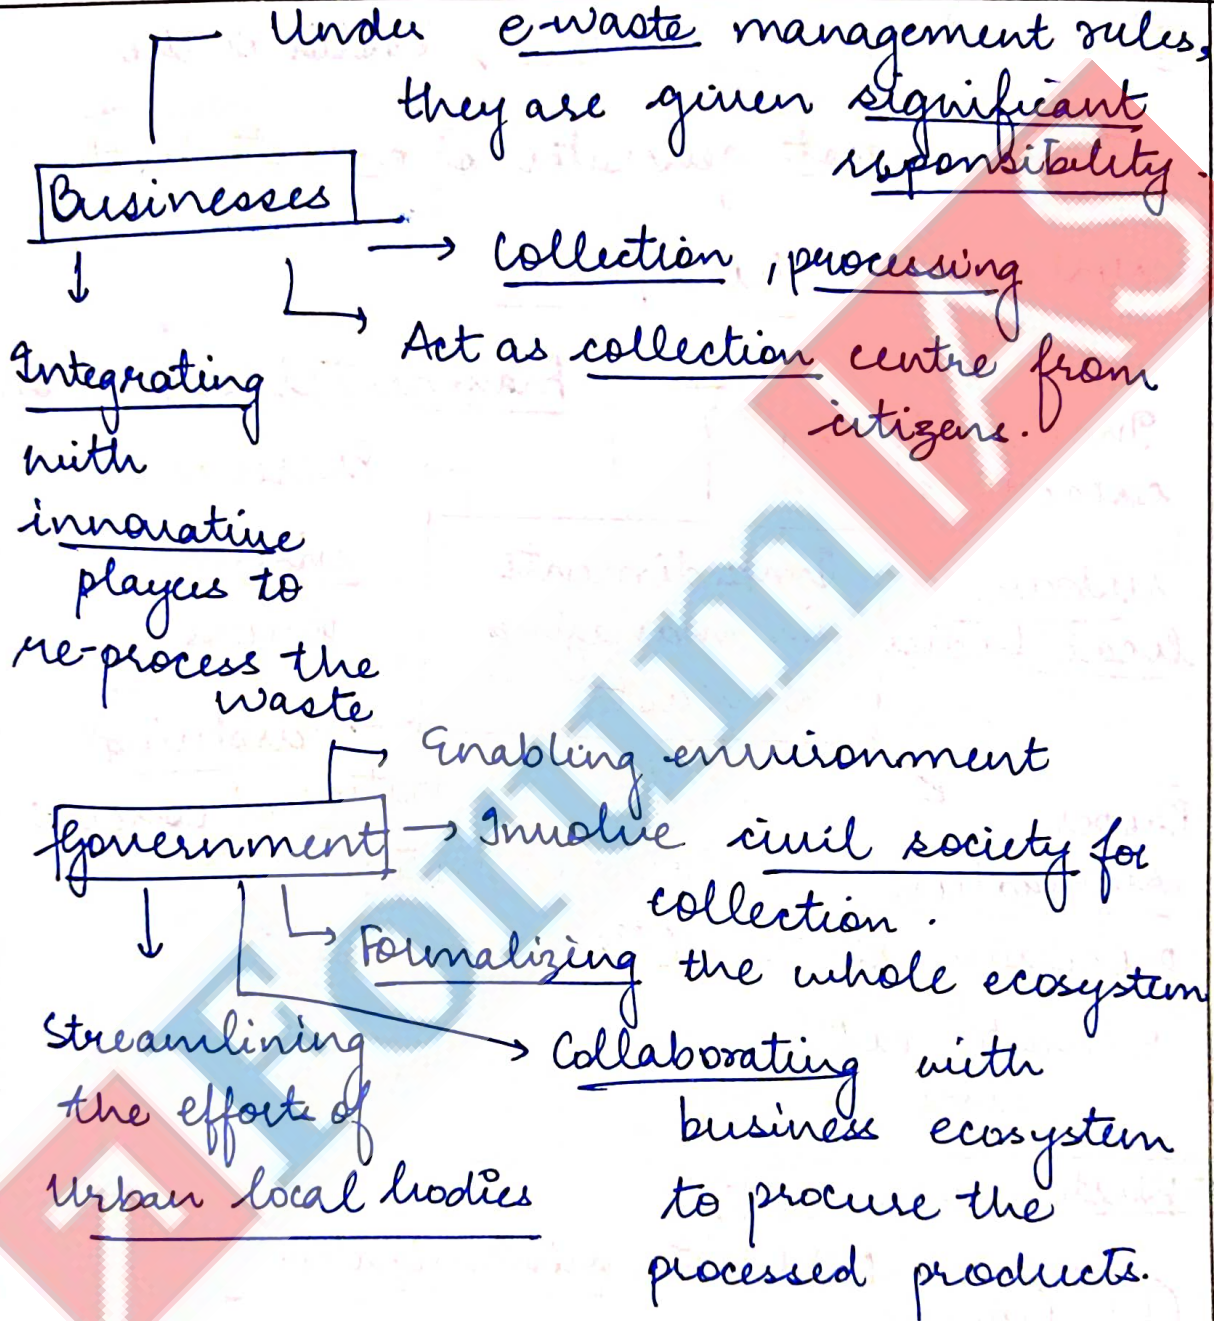 Under e-waste management rules,
they are given significant
reponsibility.
Businesses
→ Collection, processing
Act as collection centre from
citizens.
Integrating
with
innovative
players to
re-process the
waste
Enabling environment
Government → Involve civil society for
collection.
Formalizing the whole ecosystem
Streamlining
the efforts of
Urban local bodies
Collaborating with
business ecosystem
to procure the
processed products.
Forum IAS